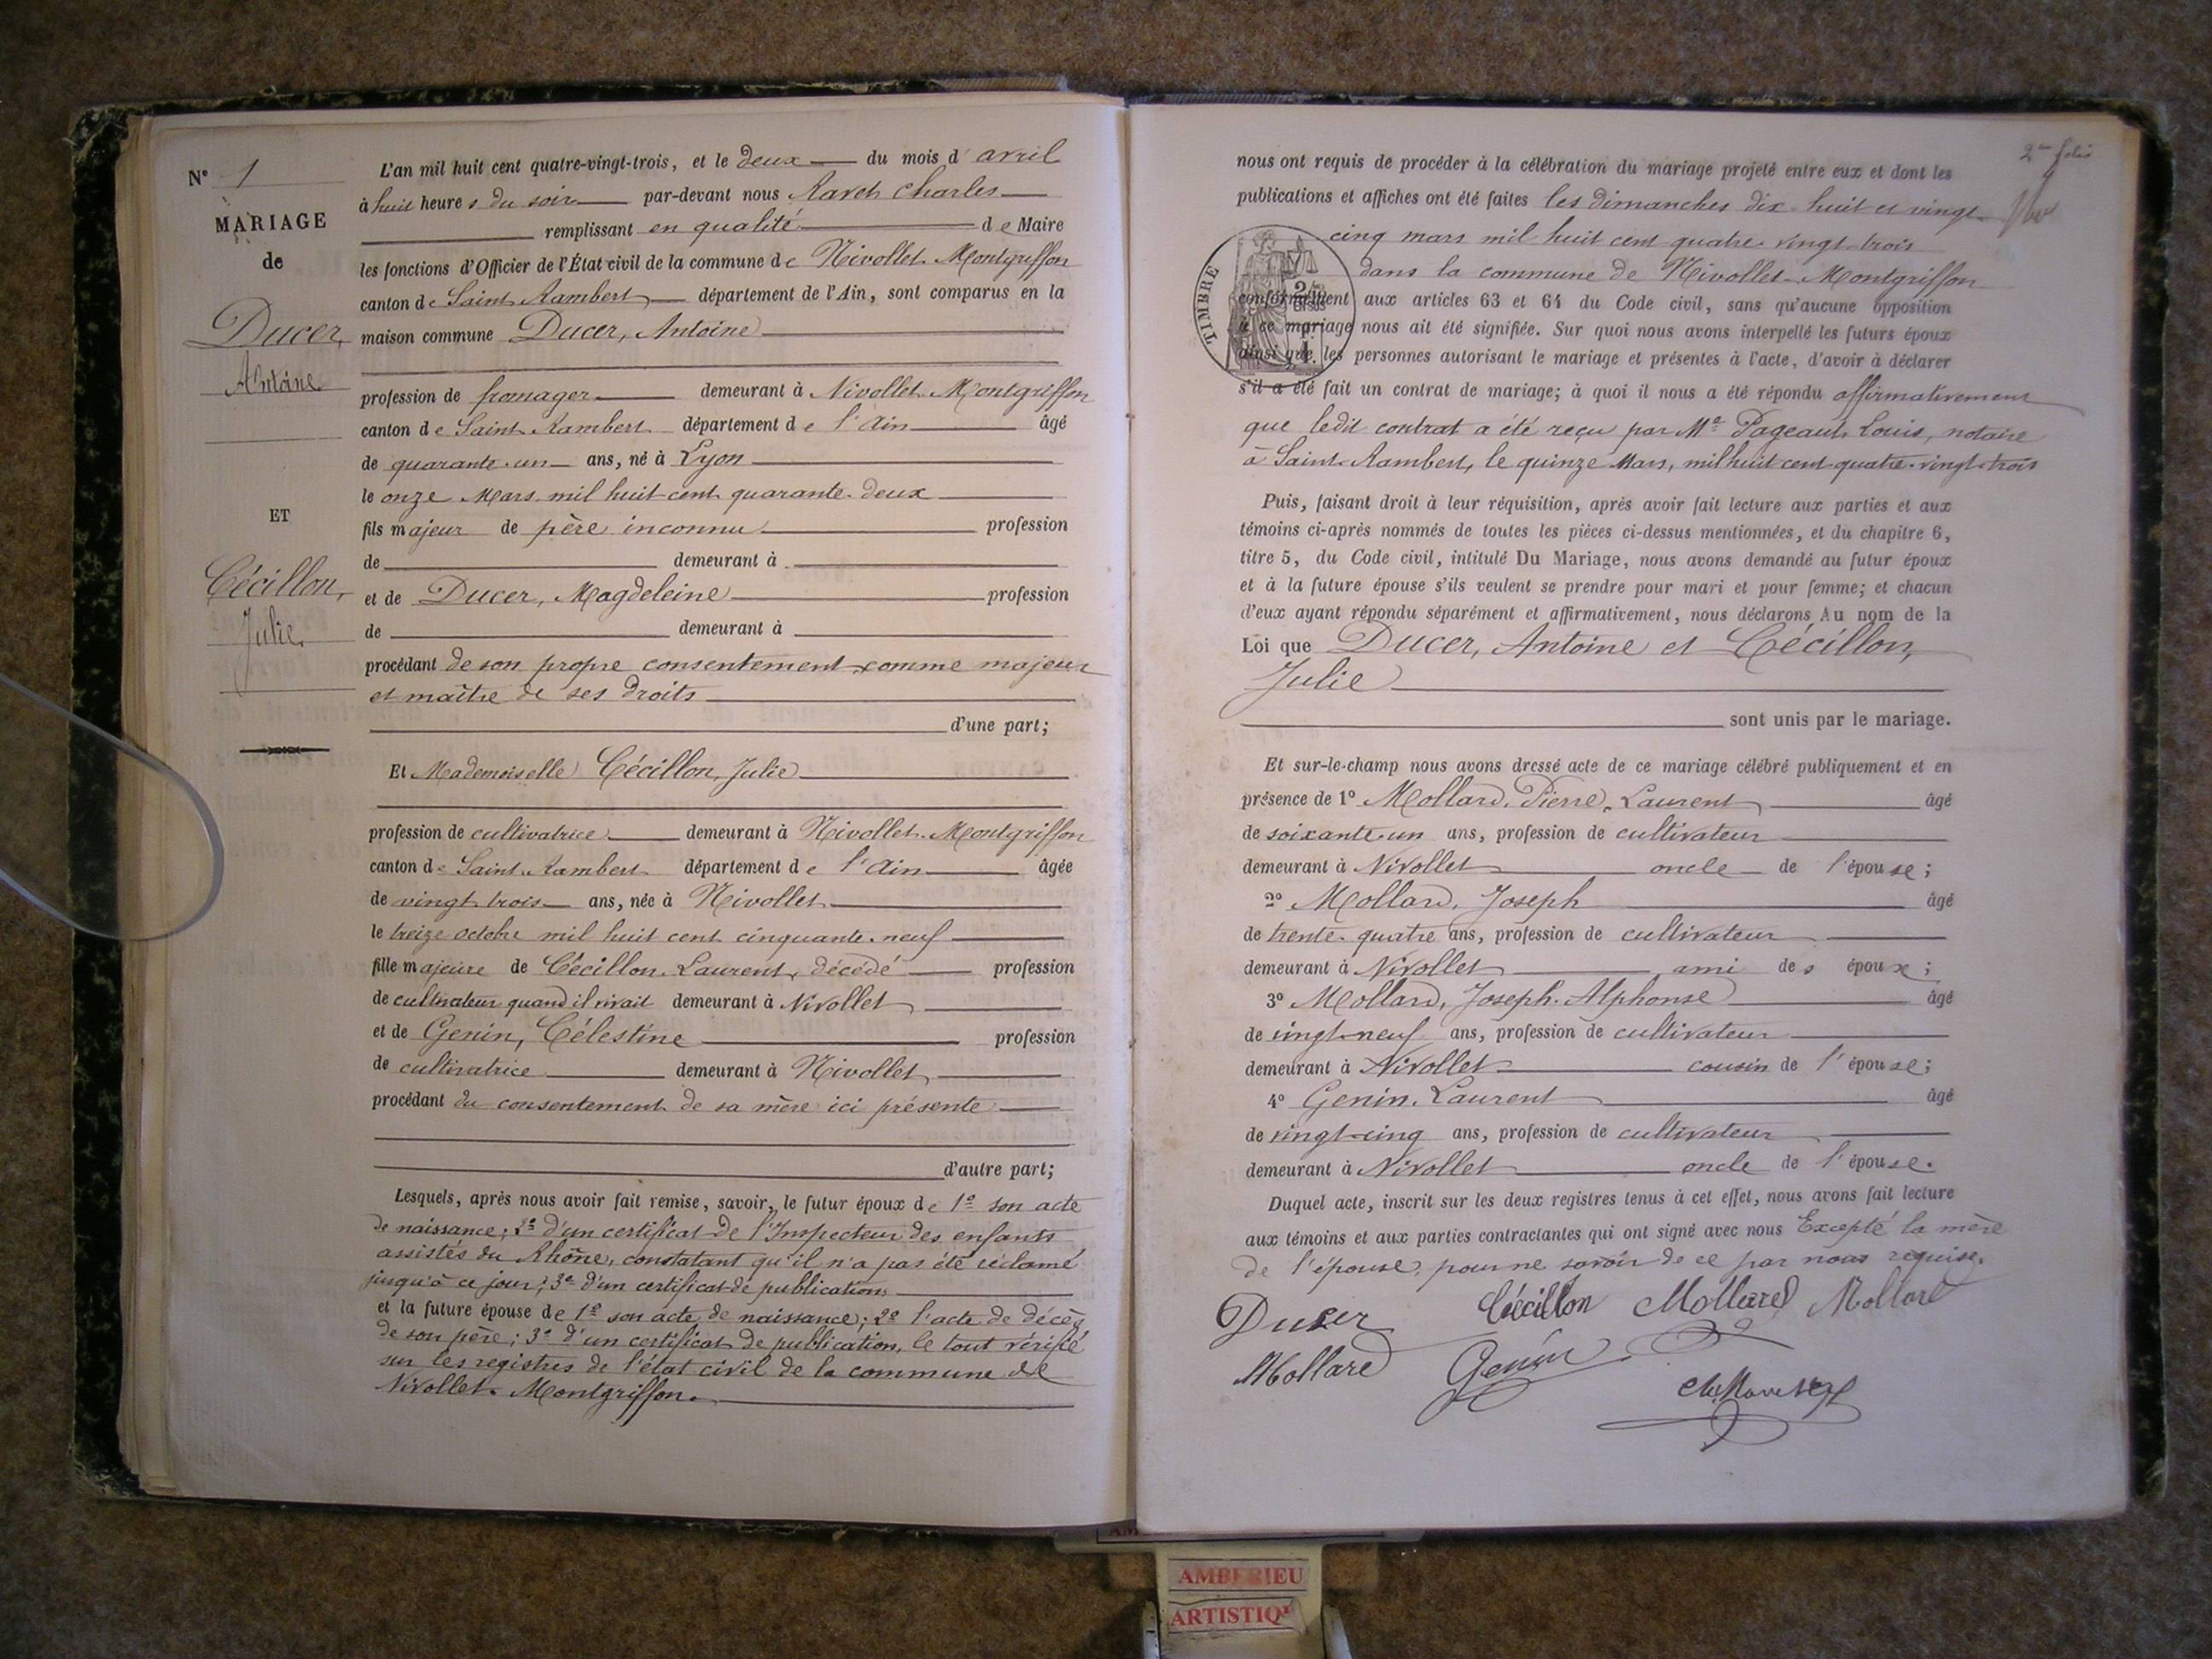 N° 1
MARIAGE
de
Ducer,
Antoine
ET
Cécillon,
Julie
L'an mil huit cent quatre-vingt-trois, et le deux du mois d'avril
à huit heures du soir par-devant nous Charles
remplissant en qualité de Maire
les fonctions d'Officier de l'État civil de la commune de Nivollet-Montgriffon
canton de Saint-Rambert département de l'Ain, sont comparus en la
maison commune Ducer, Antoine
profession de fromager demeurant à Nivollet-Montgriffon
canton de Saint-Rambert département de l'Ain âgé
de quarante-un ans, né à Lyon
le onze Mars mil huit cent quarante-deux
fils majeur de père inconnu profession
de demeurant à
et de Ducer, Magdeleine profession
de demeurant à
procédant de son propre consentement comme majeur
et maître de ses droits
d'une part;
Et Mademoiselle Cécillon, Julie
profession de cultivatrice demeurant à Nivollet-Montgriffon
canton de Saint-Rambert département de l'Ain âgée
de vingt-trois ans, née à Nivollet
le treize octobre mil huit cent cinquante-neuf
fille majeure de Cécillon Laurent, décédé profession
de cultivateur quand il vivait demeurant à Nivollet
et de Genin, Célestine profession
de cultivatrice demeurant à Nivollet
procédant du consentement de sa mère ici présente
d'autre part;
Lesquels, après nous avoir fait remise, savoir, le futur époux de 1° son acte
de naissance; 2° d'un certificat de l'Inspecteur des enfants
assistés du Rhône, constatant qu'il n'a pas été réclamé
jusqu'à ce jour; 3° d'un certificat de publications
et la future épouse de 1° son acte de naissance; 2° l'acte de décès
de son père; 3° d'un certificat de publication, le tout vérifié
sur les registres de l'état civil de la commune de
Nivollet-Montgriffon.
2me folio
nous ont requis de procéder à la célébration du mariage projeté entre eux et dont les
publications et affiches ont été faites les dimanches dix-huit et vingt-
cinq mars mil huit cent quatre-vingt-trois
dans la commune de Nivollet-Montgriffon
TIMBRE
conformément aux articles 63 et 64 du Code civil, sans qu'aucune opposition
à ce mariage nous ait été signifiée. Sur quoi nous avons interpellé les futurs époux
ainsi que les personnes autorisant le mariage et présentes à l'acte, d'avoir à déclarer
s'il a été fait un contrat de mariage; à quoi il nous a été répondu affirmativement
que ledit contrat a été reçu par Me Pageault Louis, notaire
à Saint-Rambert, le quinze Mars, mil huit cent quatre-vingt-trois
Puis, faisant droit à leur réquisition, après avoir fait lecture aux parties et aux
témoins ci-après nommés de toutes les pièces ci-dessus mentionnées, et du chapitre 6,
titre 5, du Code civil, intitulé Du Mariage, nous avons demandé au futur époux
et à la future épouse s'ils veulent se prendre pour mari et pour femme; et chacun
d'eux ayant répondu séparément et affirmativement, nous déclarons Au nom de la
Loi que Ducer, Antoine et Cécillon,
Julie
sont unis par le mariage.
Et sur-le-champ nous avons dressé acte de ce mariage célébré publiquement et en
présence de 1° Mollard, Pierre, Laurent âgé
de soixante-un ans, profession de cultivateur
demeurant à Nivollet oncle de l'épouse;
2° Mollard, Joseph âgé
de trente-quatre ans, profession de cultivateur
demeurant à Nivollet ami des époux;
3° Mollard, Joseph-Alphonse âgé
de vingt-neuf ans, profession de cultivateur
demeurant à Nivollet cousin de l'épouse;
4° Genin, Laurent âgé
de vingt-cinq ans, profession de cultivateur
demeurant à Nivollet oncle de l'épouse.
Duquel acte, inscrit sur les deux registres tenus à cet effet, nous avons fait lecture
aux témoins et aux parties contractantes qui ont signé avec nous Excepté la mère
de l'épouse, pour ne savoir de ce par nous requise.
Ducer Cécillon Mollard Mollard
Mollard Genin
AMBERIEU
ARTISTIQ